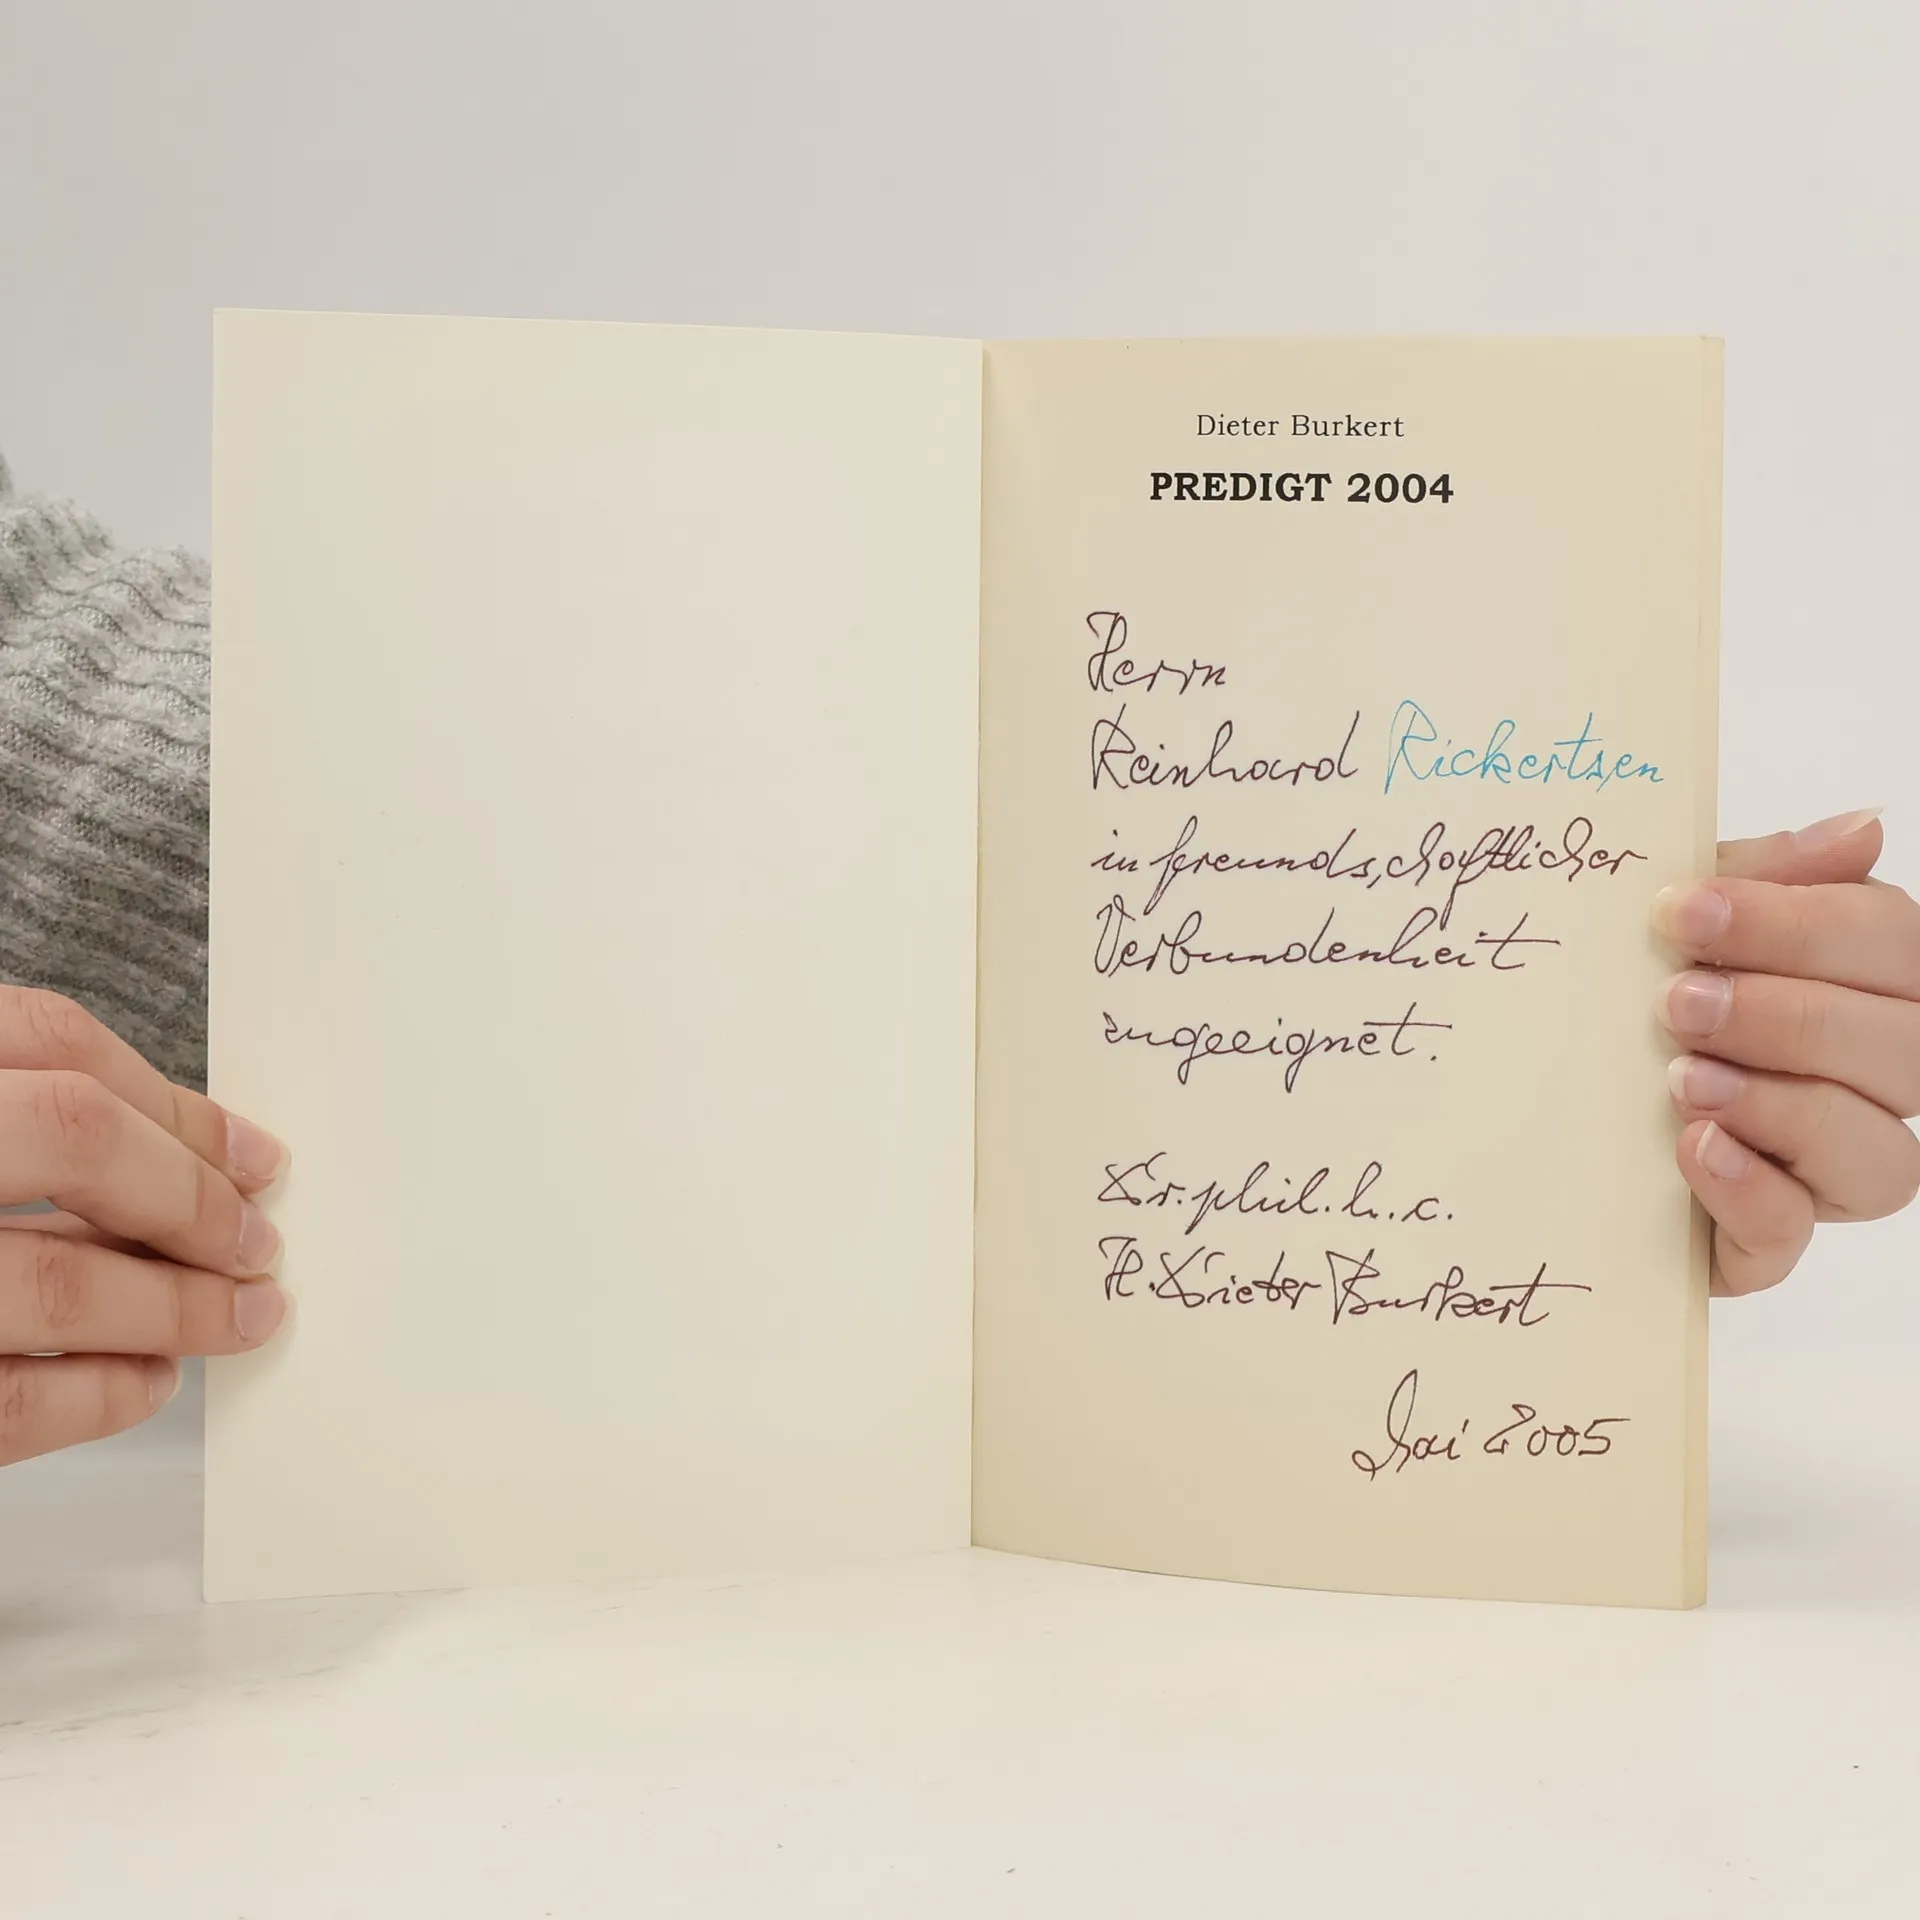 Dieter Burkert
PREDIGT 2004
Herrn
Reinhard Rickertsen
in freundschaftlicher
Verbundenheit
zugeeignet.
Dr. phil. h. c.
H. Dieter Burkert
Mai 2005